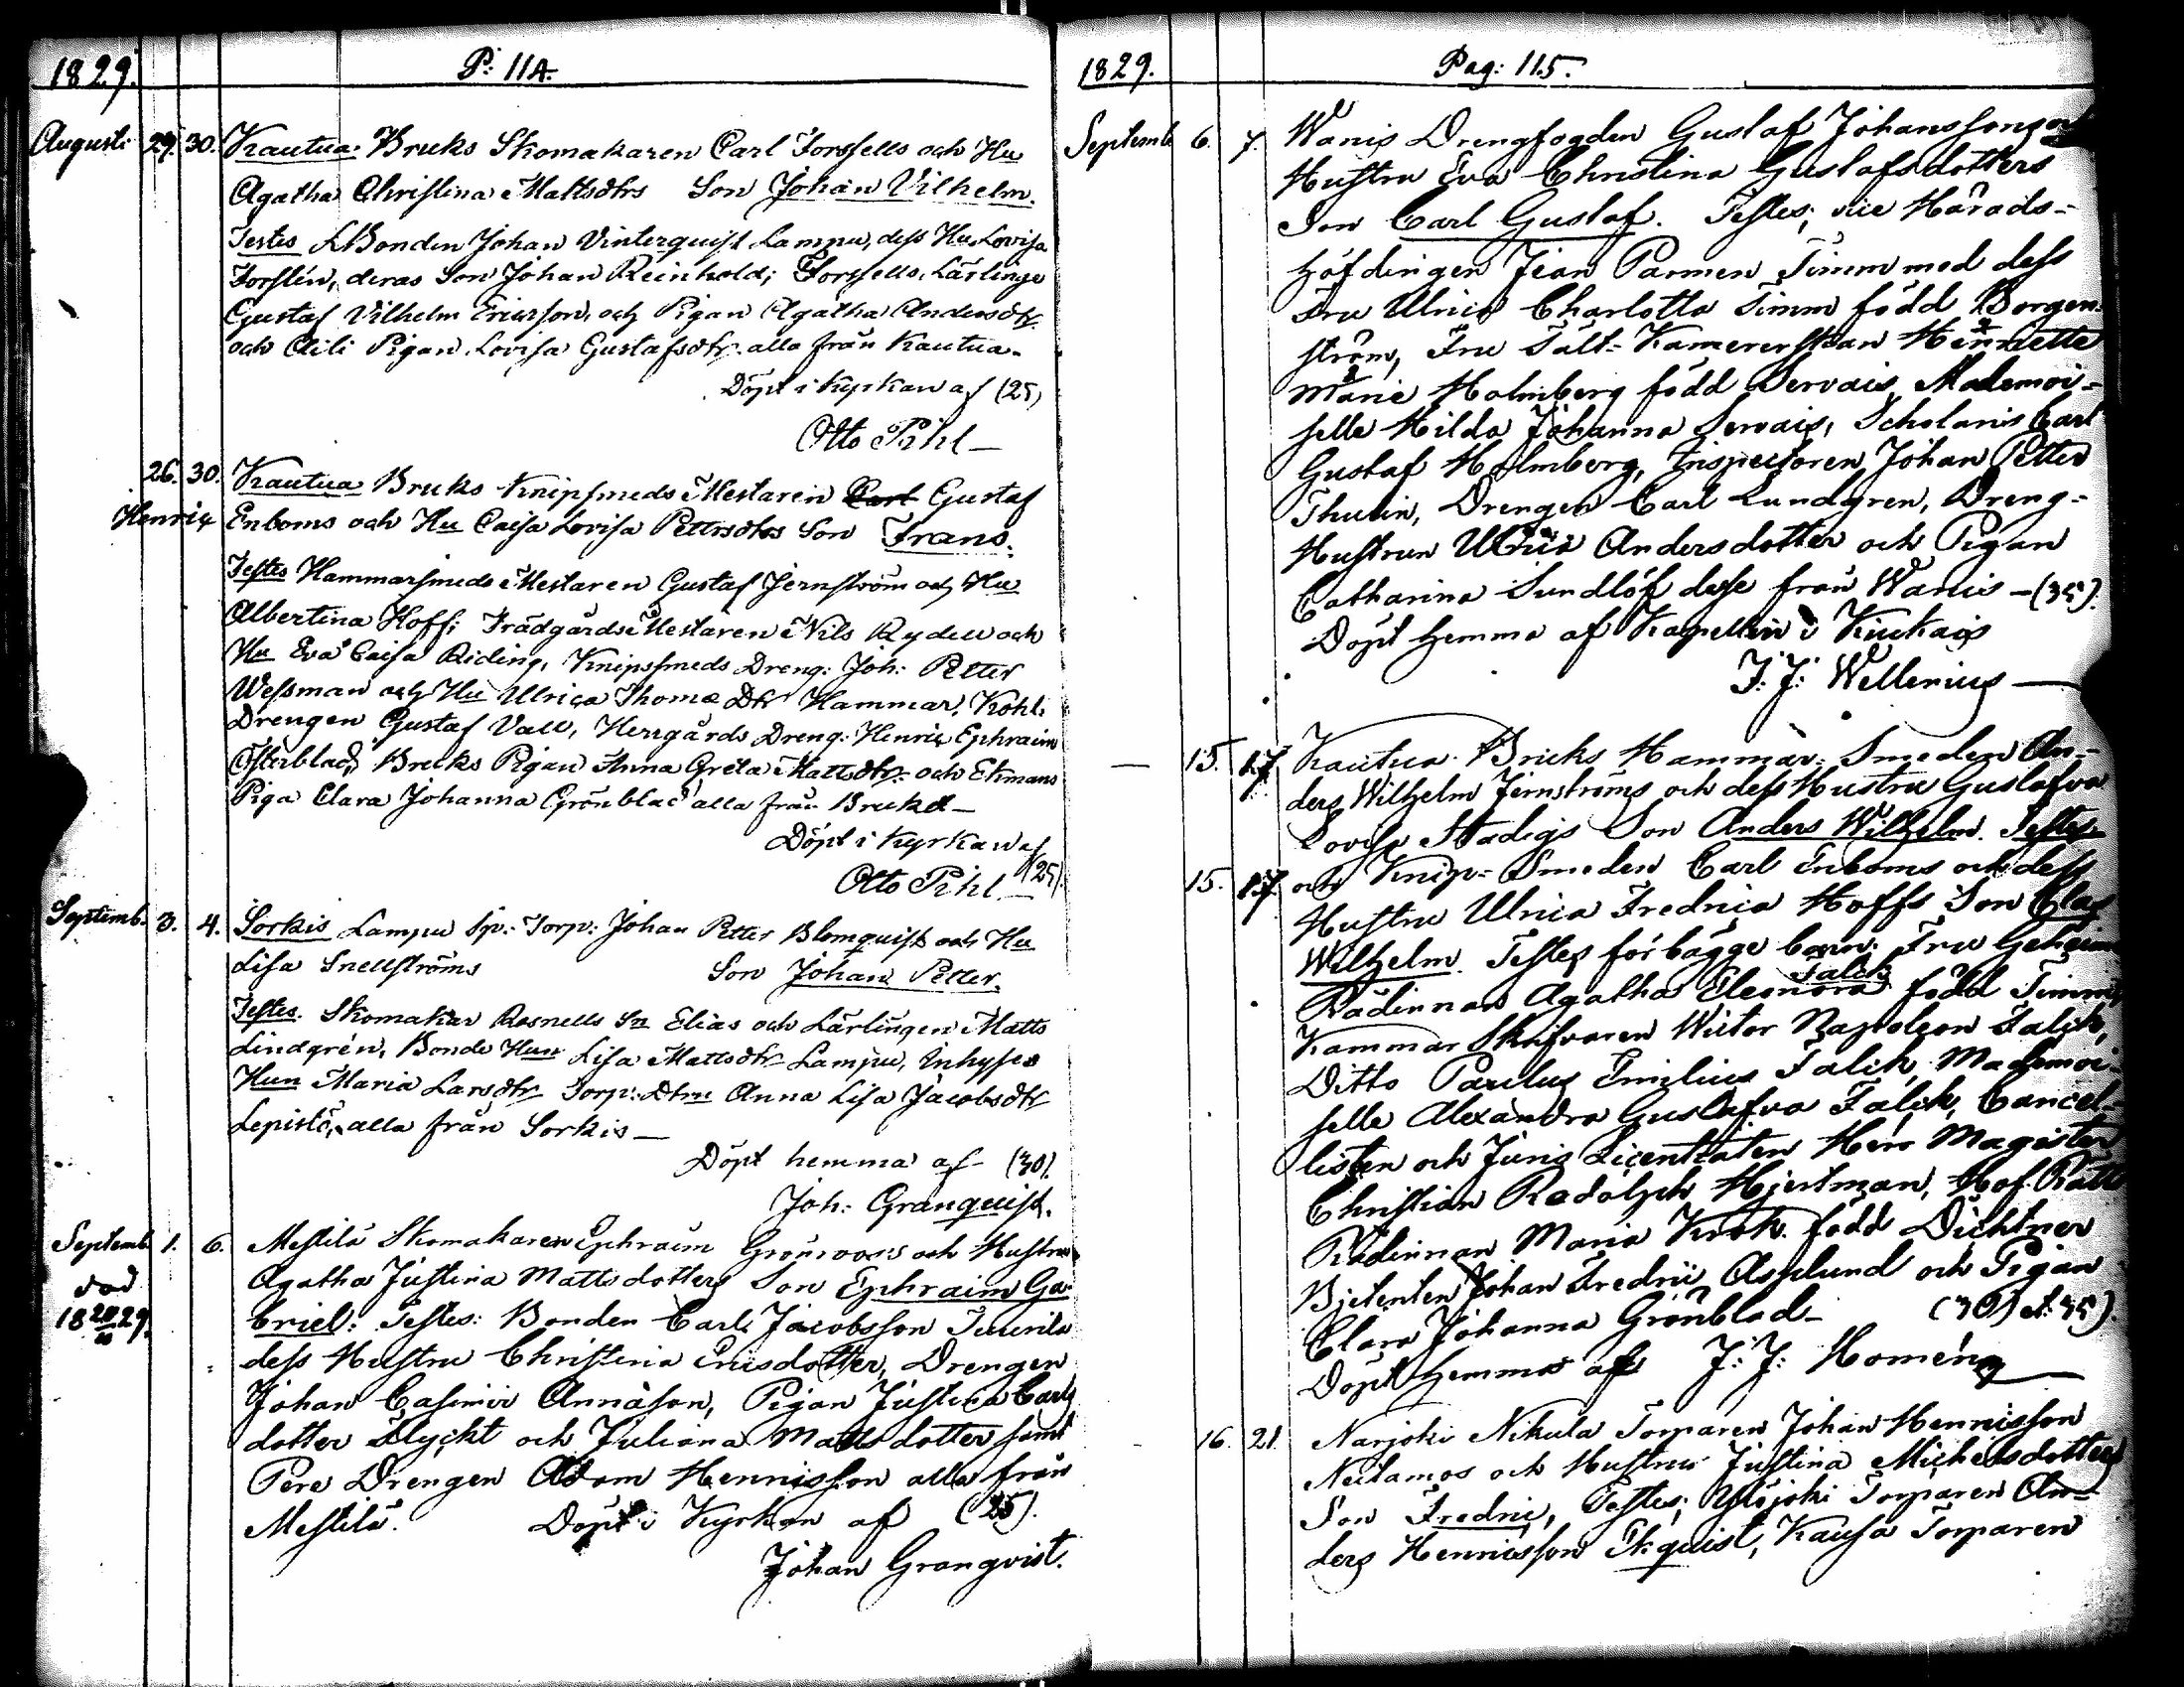 1829.
P: 114.
Augusti 29. 30. Kautua Bruks Skomakaren Carl Forssells och Hu
Agatha Christina Mattsdtrs Son Johan Vilhelm.
Testes LBonden Johan Vinterquist Lampu, dess Hu Lovisa
Forstén, deras Son Johan Reinhold; Forssells Lärlinge
Gustaf Vilhelm Ericsson, och Pigan Agatha Andersdtr
och Pigan Lovisa Gustafsdtr alla från Kautua.
Döpt i Kyrkan af (25)
Otto Pihl
26. 30. Kautua Bruks Knipsmeds Mestaren Carl Gustaf
Henric Enboms och Hu Caisa Lovisa Pettersdtrs Son Frans.
Testes Hammarsmeds Mestaren Gustaf Jernström och Hu
Albertina Hoff; Trädgårds Mestaren Nils Rydell och
Hu Eva Caisa Riding, Knipssmeds Dreng: Joh: Petter
Wessman och Hu Ulrica Thomæ Dtr Hammar, Kohl:
Drengen Gustaf Vall, Herrgårds Dreng: Henric Ephraim
Österblad, Bruks Pigan Anna Greta Mattsdtr och Ekmans
Piga Clara Johanna Grönblad alla från Bruket
Döpt i Kyrkan af
(25).
Otto Pihl
Septemb. 3. 4. Sorkis Lampu Sp: Torp: Johan Petter Blomquist och Hu
Lisa Snellströms Son Johan Petter.
Testes. Skomakar Rosnells Sn Elias och Lärlingen Matts
Lindgrén, Bonde Hun Lisa Mattsdtr Lampu, Inhyses
Hun Maria Larsdtr Torp: Dtrn Anna Lisa Jacobsdtr
Lepistö, alla från Sorkis
Döpt hemma af (30).
Joh: Granquist.
Septemb. 1. 6. Mestilä Skomakaren Ephraim Grönroos's och Hustru
död
Agatha Justina Mattsdotters Son Ephraim Ga-
18 29.
briel: Testes: Bonden Carl Jacobsson
dess Hustru Christina Ericsdotter, Drengen
Johan Casimir Annæson, Pigan Justina Carls
dotter Flyckt och Juliana Mattsdotter samt
Pere Drengen Adam Henricsson alla från
Mestilä. Döpt i Kyrkan af (25).
Johan Granqvist.
1829.
Pag: 115.
Septemb. 6. 7. Wanis Drengfogden Gustaf Johanssons och
Hustru Eva Christina Gustafsdotters
Son Carl Gustaf. Testes; vice Härads-
höfdingen Jean Parmen Timm med dess
Fru Ulrica Charlotta Timm född Borgen-
ström, Fru Fält-Kamererskan Henriette
Marie Holmberg född Servais, Mademoi-
selle Hilda Johanna Servais, Scholaris Carl
Gustaf Holmberg, Inspectoren Johan Petter
Thulin, Drengen Carl Lundgren, Dreng-
Hustrun Ulrica Andersdotter och Pigan
Catharina Sundlöf desse från Wanis - (35).
Döpt hemma af Kapellan i Kiukais
J: J: Wellenius
15. 17. Kautua Bruks Hammar-Smeden An-
ders Wilhelm Jernströms och dess Hustru Gustafva
Lovisa Stadigs Son Anders Wilhelm. Testes
15. 17. och Knip-Smeden Carl Enboms och dess
Hustru Ulrica Fredrica Hoffs Son Clas
Wilhelm. Testes för bägge barn: Fru Geheime
Falck
Rådinnan Agatha Eleonora född Timm,
Kammar Skrifvaren Victor Napoleon Falck,
Ditto Paulus Emilius Falck, Mademoi-
selle Alexandra Gustafva Falck, Cancel-
listen och Juris Licentiaten Herr Magister
Christian Rodolph Hjertman, Hof Rätts
Rådinnan Maria Krok född Dichtner
Bjetenten Johan Fredric Asplund och Pigan
Clara Johanna Grönblad- (30) et 35).
Döpt hemma af J: J: Homén
16. 21. Narjoki Nikula Torparen Johan Henricsson
Neitamos och Hustru Justina Michelsdotters
Son Fredric, Testes; Ylijoki Torparen An-
ders Henricsson Ekquist, Kausa Torparen